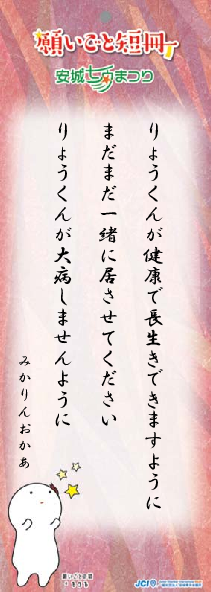 願いごと短冊
安城七夕まつり
りょうくんが健康で長生きできますように
まだまだ一緒に居させてください
りょうくんが大病しませんように
みかりんおかあ
願いごとの国
JCI